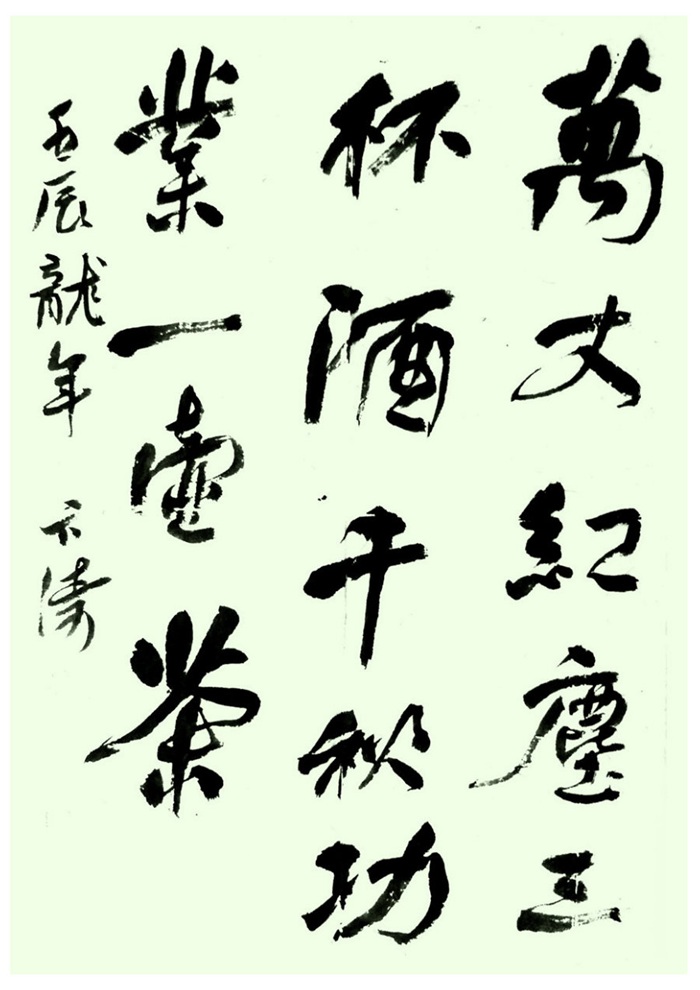 萬丈紅塵三
杯酒千秋功
業一壺茶
壬辰龍年 濤